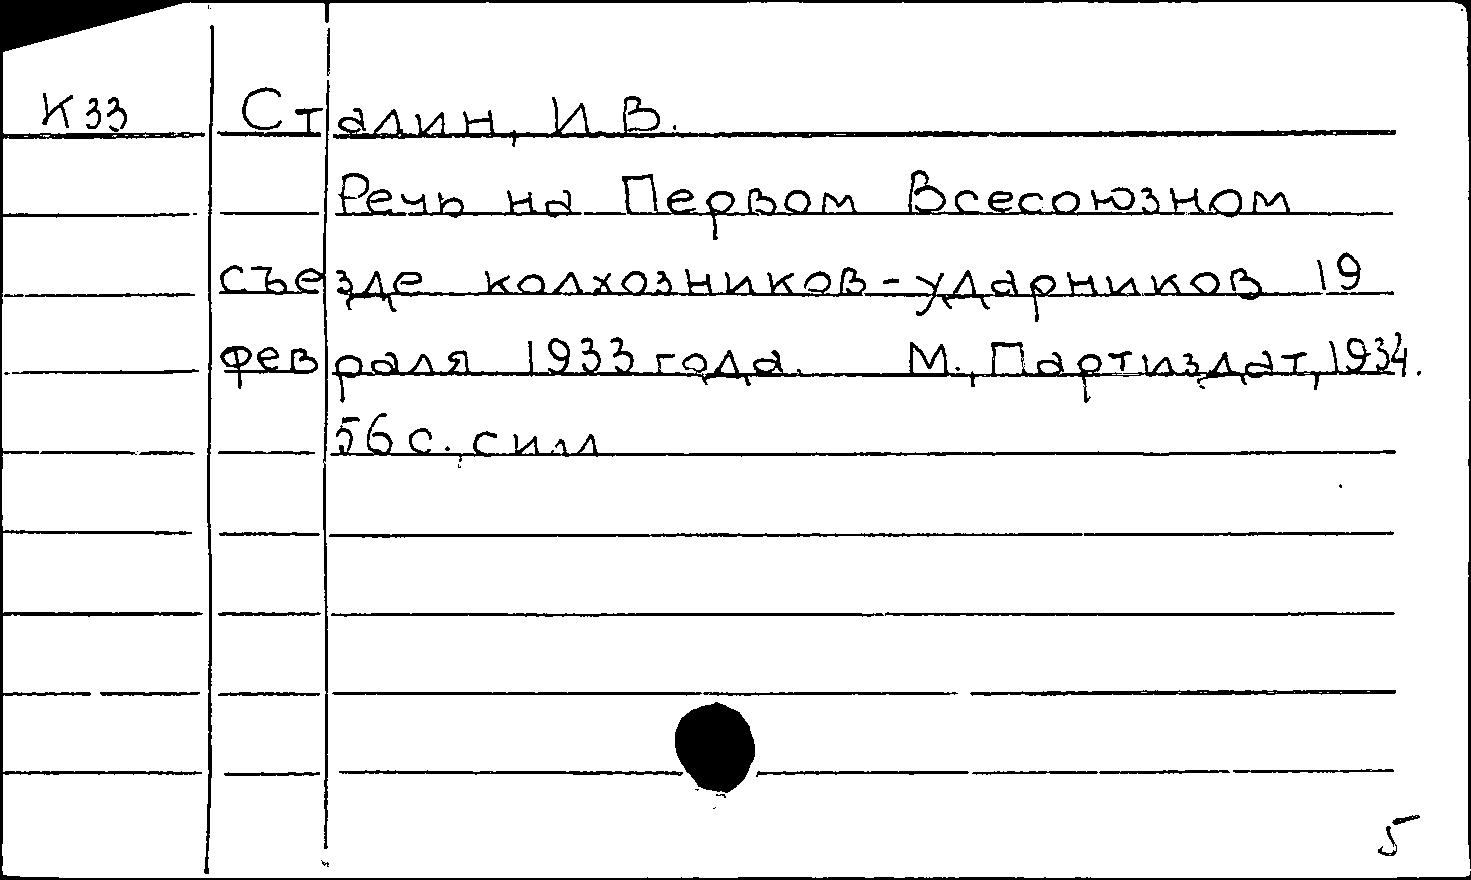 К33 Сталин, И.В.
Речь на Первом Всесоюзном
съезде колхозников-ударников 19
февраля 1933 года. М., Партиздат, 1934.
56 с., с илл
5